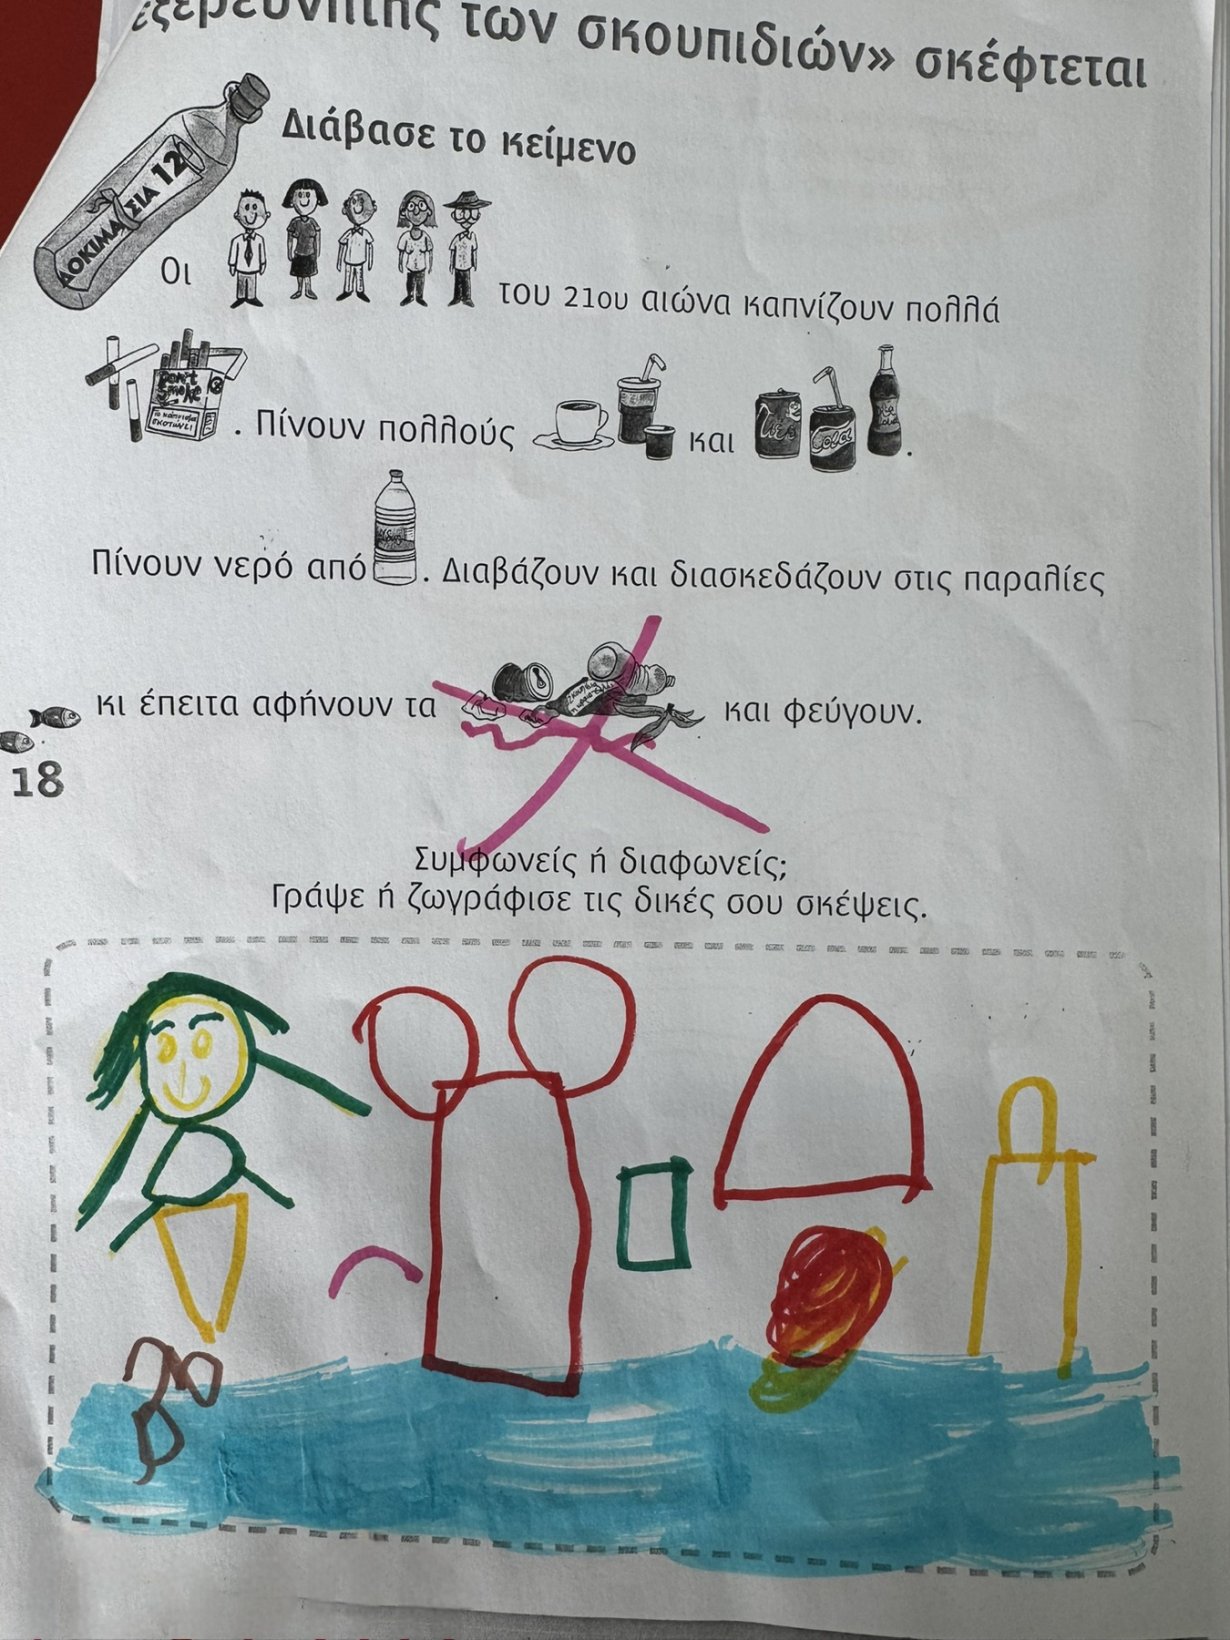 εξερευνητής των σκουπιδιών» σκέφτεται
Διάβασε το κείμενο
ΔΟΚΙΜΑΣΙΑ 12
Οι του 21ου αιώνα καπνίζουν πολλά
Don't
Smoke
Το κάπνισμα
σκοτώνει
. Πίνουν πολλούς και .
Cola
Πίνουν νερό από . Διαβάζουν και διασκεδάζουν στις παραλίες
κι έπειτα αφήνουν τα και φεύγουν.
18
Συμφωνείς ή διαφωνείς;
Γράψε ή ζωγράφισε τις δικές σου σκέψεις.